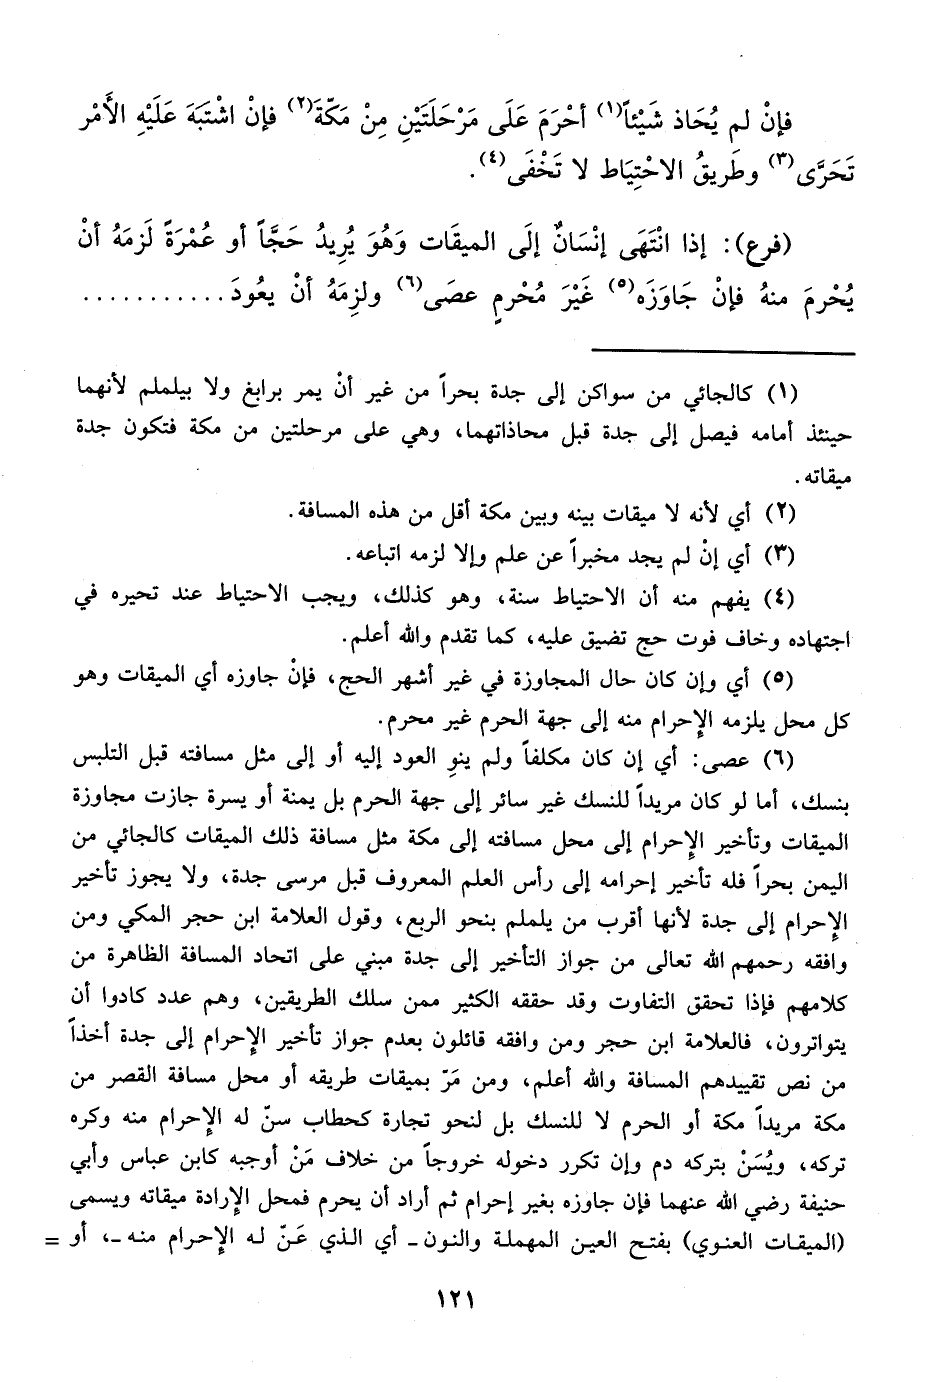 فإنْ لم يُحَاذ شَيْئاً(١) أحْرَمَ عَلَى مَرْحَلَتَيْنِ مِنْ مَكّةَ(٢) فإنْ اشْتَبَهَ عَلَيْهِ الأَمْر
تَحَرَّى(٣) وطَريقُ الاحْتِيَاط لا تَخْفَى(٤).
(فرع): إذا انْتَهَى إنْسَانٌ إلَى الميقَات وَهُوَ يُرِيدُ حَجَّاً أو عُمْرَةً لَزِمَهُ أنْ
يُحْرِمَ منهُ فإنْ جَاوَزَه(٥) غَيْرَ مُحْرِمٍ عصَى(٦) ولزِمَهُ أنْ يعُودَ...........
(١) كالجائي من سواكن إلى جدة بحراً من غير أنْ يمر برابغ ولا بيلملم لأنهما
حينئذ أمامه فيصل إلى جدة قبل محاذاتهما، وهي على مرحلتين من مكة فتكون جدة
ميقاته.
(٢) أي لأنه لا ميقات بينه وبين مكة أقل من هذه المسافة.
(٣) أي إنْ لم يجد مخبراً عن علم وإلا لزمه اتباعه.
(٤) يفهم منه أن الاحتياط سنة، وهو كذلك، ويجب الاحتياط عند تحيره في
اجتهاده وخاف فوت حج تضيق عليه، كما تقدم والله أعلم.
(٥) أي وإن كان حال المجاوزة في غير أشهر الحج، فإنْ جاوزه أي الميقات وهو
كل محل يلزمه الإحرام منه إلى جهة الحرم غير محرم.
(٦) عصى: أي إن كان مكلفاً ولم ينوِ العود إليه أو إلى مثل مسافته قبل التلبس
بنسك، أما لو كان مريداً للنسك غير سائر إلى جهة الحرم بل يمنة أو يسرة جازت مجاوزة
الميقات وتأخير الإحرام إلى محل مسافته إلى مكة مثل مسافة ذلك الميقات كالجائي من
اليمن بحراً فله تأخير إحرامه إلى رأس العلم المعروف قبل مرسى جدة، ولا يجوز تأخير
الإحرام إلى جدة لأنها أقرب من يلملم بنحو الربع، وقول العلامة ابن حجر المكي ومن
وافقه رحمهم الله تعالى من جواز التأخير إلى جدة مبني على اتحاد المسافة الظاهرة من
كلامهم فإذا تحقق التفاوت وقد حققه الكثير ممن سلك الطريقين، وهم عدد كادوا أن
يتواترون، فالعلامة ابن حجر ومن وافقه قائلون بعدم جواز تأخير الإحرام إلى جدة أخذاً
من نص تقييدهم المسافة والله أعلم، ومن مَرّ بميقات طريقه أو محل مسافة القصر من
مكة مريداً مكة أو الحرم لا للنسك بل لنحو تجارة كحطاب سنّ له الإحرام منه وكره
تركه، ويُسَنْ بتركه دم وإن تكرر دخوله خروجاً من خلاف مَنْ أوجبه كابن عباس وأبي
حنيفة رضي الله عنهما فإن جاوزه بغير إحرام ثم أراد أن يحرم فمحل الإرادة ميقاته ويسمى
(الميقات العنوي) بفتح العين المهملة والنون - أي الذي عَنّ له الإحرام منه -، أو =
١٢١